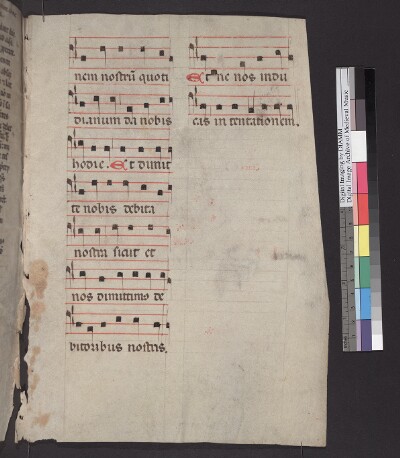 nem nostrũ quoti
dianum da nobis
hodie. Et dimit
te nobis debita
nostra sicut et
nos dimittimꝰ de
bitoribus nostris.
Et ne nos indu
cas in tentationem.
Digital Imaging by DIAMM
Digital Image Archive of Medieval Music